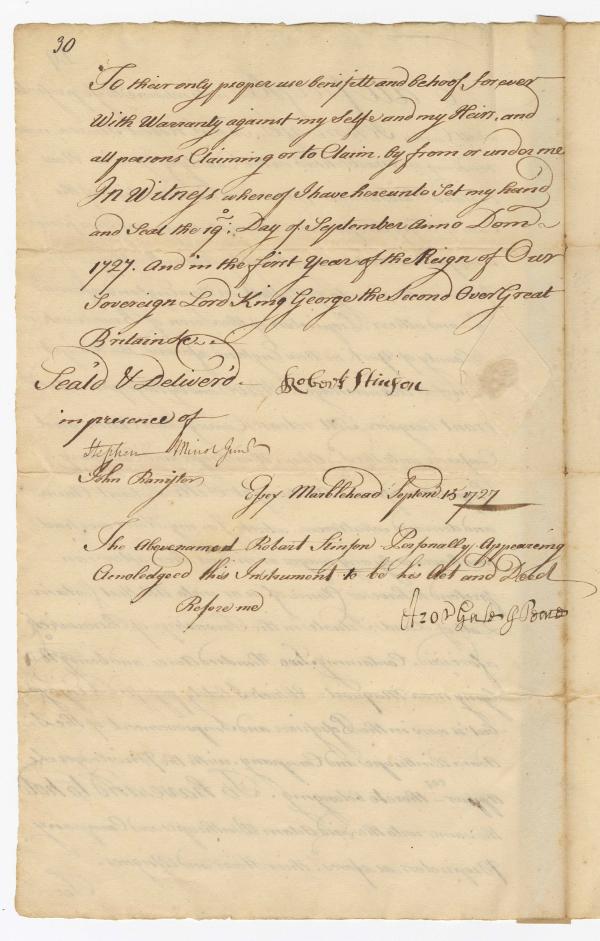 30
To their only proper use benifitt and behoof for ever
With Warranty against my Selfe and my Heirs, and
all persons Claiming or to Claim, by from or under me
In Witness whereof I have hereunto Set my hand
and Seal the 19th: Day of September Anno Dom
1727. And in the first Year of the Reign of Our
Sovereign Lord King George the Second Over Great
Britain &c.
Seal'd & Deliver'd
Robert Stinson
in presence of
Stephen Minot Junr
John Banister
Essex Marblehead Septemr 18 1727
The Abovenamed Robart Stinson Personally Appeareing
Acnoledgeed this Instrument to be his Act and Deed
Before me